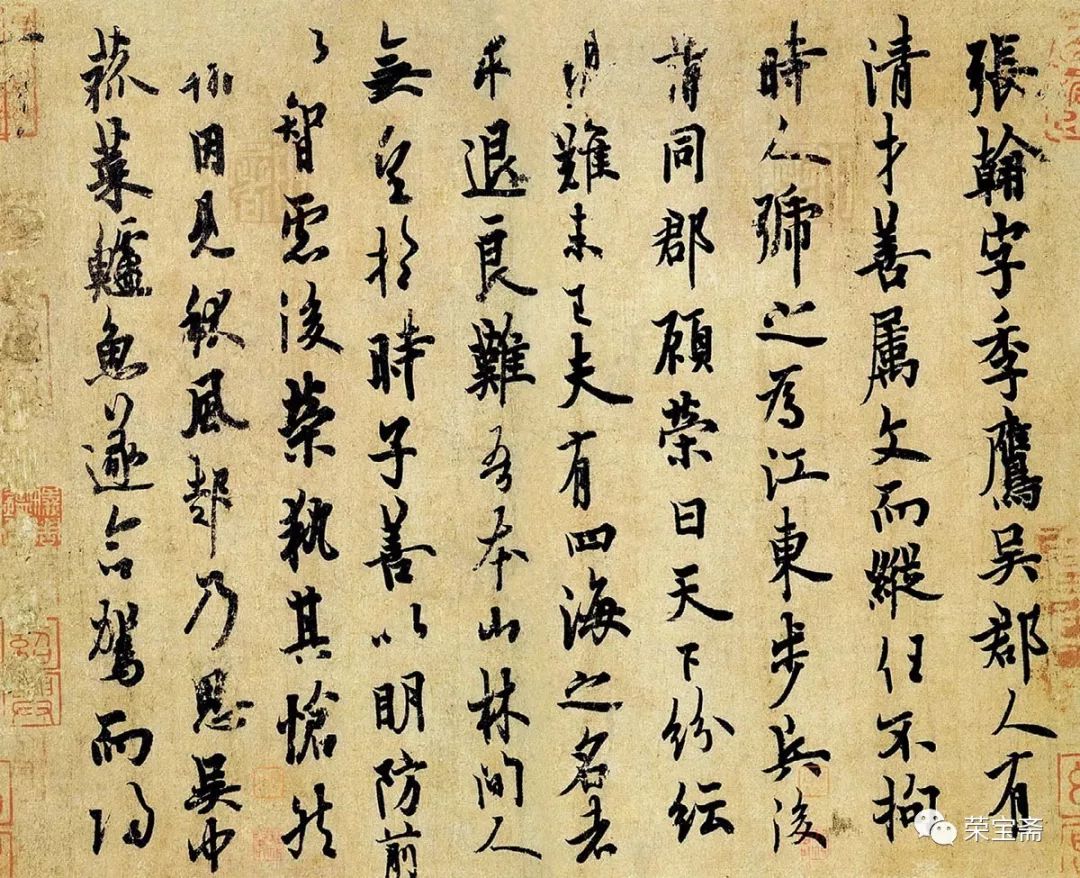 張翰字季鷹吳郡人有
清才善屬文而縱任不拘
時人號之為江東步兵後
謂同郡顧榮曰天下紛紜
難未已夫有四海之名者
求退良難吾本山林間人
無望於時子善以明防前
以智慮後榮執其愴然
因見秋風起乃思吳中
菰菜鱸魚遂命駕而歸
荣宝斋